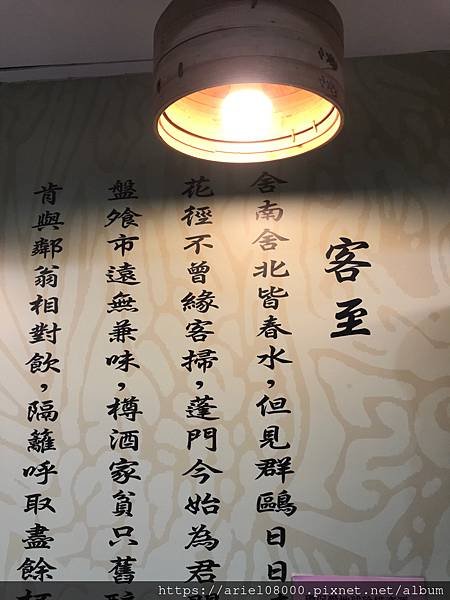 客至
舍南舍北皆春水，但見群鷗日日
花徑不曾緣客掃，蓬門今始為君
盤飧市遠無兼味，樽酒家貧只舊
肯與鄰翁相對飲，隔籬呼取盡餘
https://ariel08000.pixnet.net/album